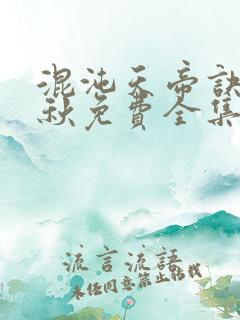 混沌天帝訣
秋免費全集
流言流語
未任同意禁止轉載